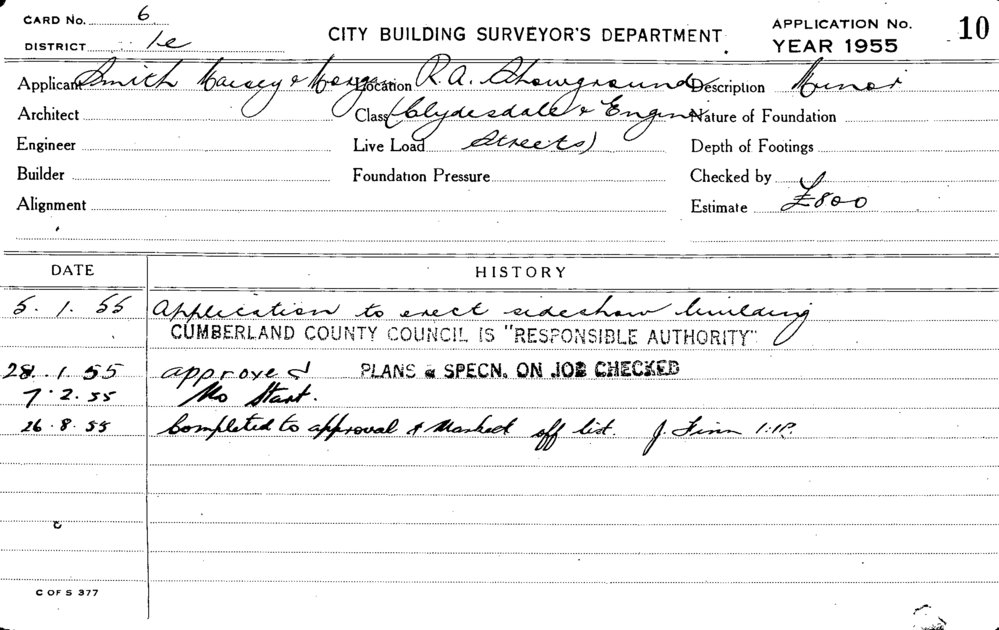 CARD No. 6
DISTRICT 1c
CITY BUILDING SURVEYOR'S DEPARTMENT
APPLICATION No. 10
YEAR 1955
Applicant Smith Maisey & Morgan Location R.A. Showground Description Minor
Architect Class (Clydesdale & Engine Nature of Foundation
Engineer Live Load Streets) Depth of Footings
Builder Foundation Pressure Checked by
Alignment Estimate £800
DATE HISTORY
5. 1. 55 Application to erect sideshow building
CUMBERLAND COUNTY COUNCIL IS "RESPONSIBLE AUTHORITY"
28. 1. 55 approved PLANS & SPECN. ON JOB CHECKED
7. 2. 55 No Start.
26. 8. 55 Completed to approval & Marked off list. J. Finn
C OF S 377